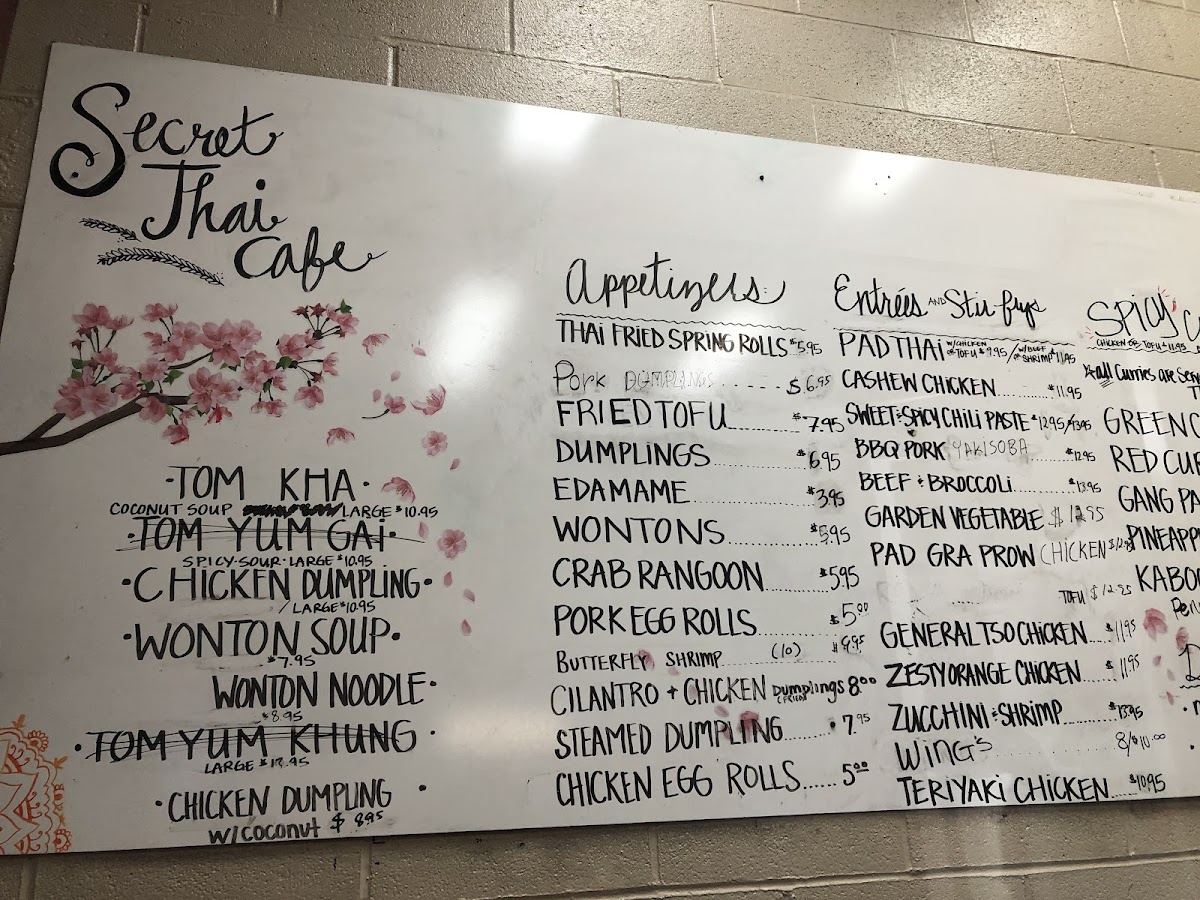 Secret
Thai
Cafe
·TOM KHA·
COCONUT SOUP LARGE $10.95
·TOM YUM GAI·
SPICY·SOUR·LARGE $10.95
·CHICKEN DUMPLING·
/LARGE $10.95
·WONTON SOUP·
$7.95
WONTON NOODLE·
$8.95
·TOM YUM KHUNG·
LARGE $13.95
·CHICKEN DUMPLING·
w/coconut $8.95
Appetizers
THAI FRIED SPRING ROLLS $5.95
Pork DUMPLINGS ..... $6.95
FRIED TOFU $7.95
DUMPLINGS $6.95
EDAMAME $3.95
WONTONS $5.95
CRAB RANGOON $5.95
PORK EGG ROLLS $5.00
BUTTERFLY SHRIMP (10) $9.95
CILANTRO + CHICKEN Dumplings (FRIED) 8.00
STEAMED DUMPLING $7.95
CHICKEN EGG ROLLS 5.00
Entrées AND Stir-frys
PAD THAI W/CHICKEN OR TOFU $9.95 / W/BEEF OR SHRIMP $11.95
CASHEW CHICKEN $11.95
SWEET & SPICY CHILI PASTE $12.95/13.95
BBQ PORK YAKISOBA $12.95
BEEF & BROCCOLI $13.95
GARDEN VEGETABLE $12.95
PAD GRA PROW CHICKEN
TOFU $12.95
GENERAL TSO CHICKEN $11.95
ZESTY ORANGE CHICKEN $11.95
ZUCCHINI & SHRIMP $13.95
WING'S 8/$10.00
TERIYAKI CHICKEN $10.95
SPICY
CHICKEN OR TOFU $11.95
*all Curries are
GREEN
RED
GANG